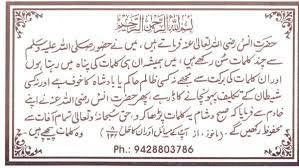 بسم اللہ الرحمن الرحیم
حضرت انس رضی اللہ تعالیٰ عنہ فرماتے ہیں، میں نے حضور صلی اللہ علیہ وسلم
سے چند کلمات سنے ہیں، میں ہمیشہ ان ہی کلمات کی پناہ میں رہتا ہوں
اور ان کلمات کی برکت سے مجھے نہ کسی ظالم حاکم یا بادشاہ کا خوف ہے اور نہ کسی
شیطان کے تکلیف پہونچانے کا ڈر ہے، پھر حضرت انس رضی اللہ عنہ نے اپنے
خادم سے فرمایا کہ صبح و شام یہ کلمات پڑھا کرو، حق سبحانہ و تعالیٰ تمام آفات سے
محفوظ رکھیں گے۔ (ماخوذ، از: آپ کے مسائل اور ان کا حل) وہ کلمات یہ ہیں:
Ph.: 9428803786